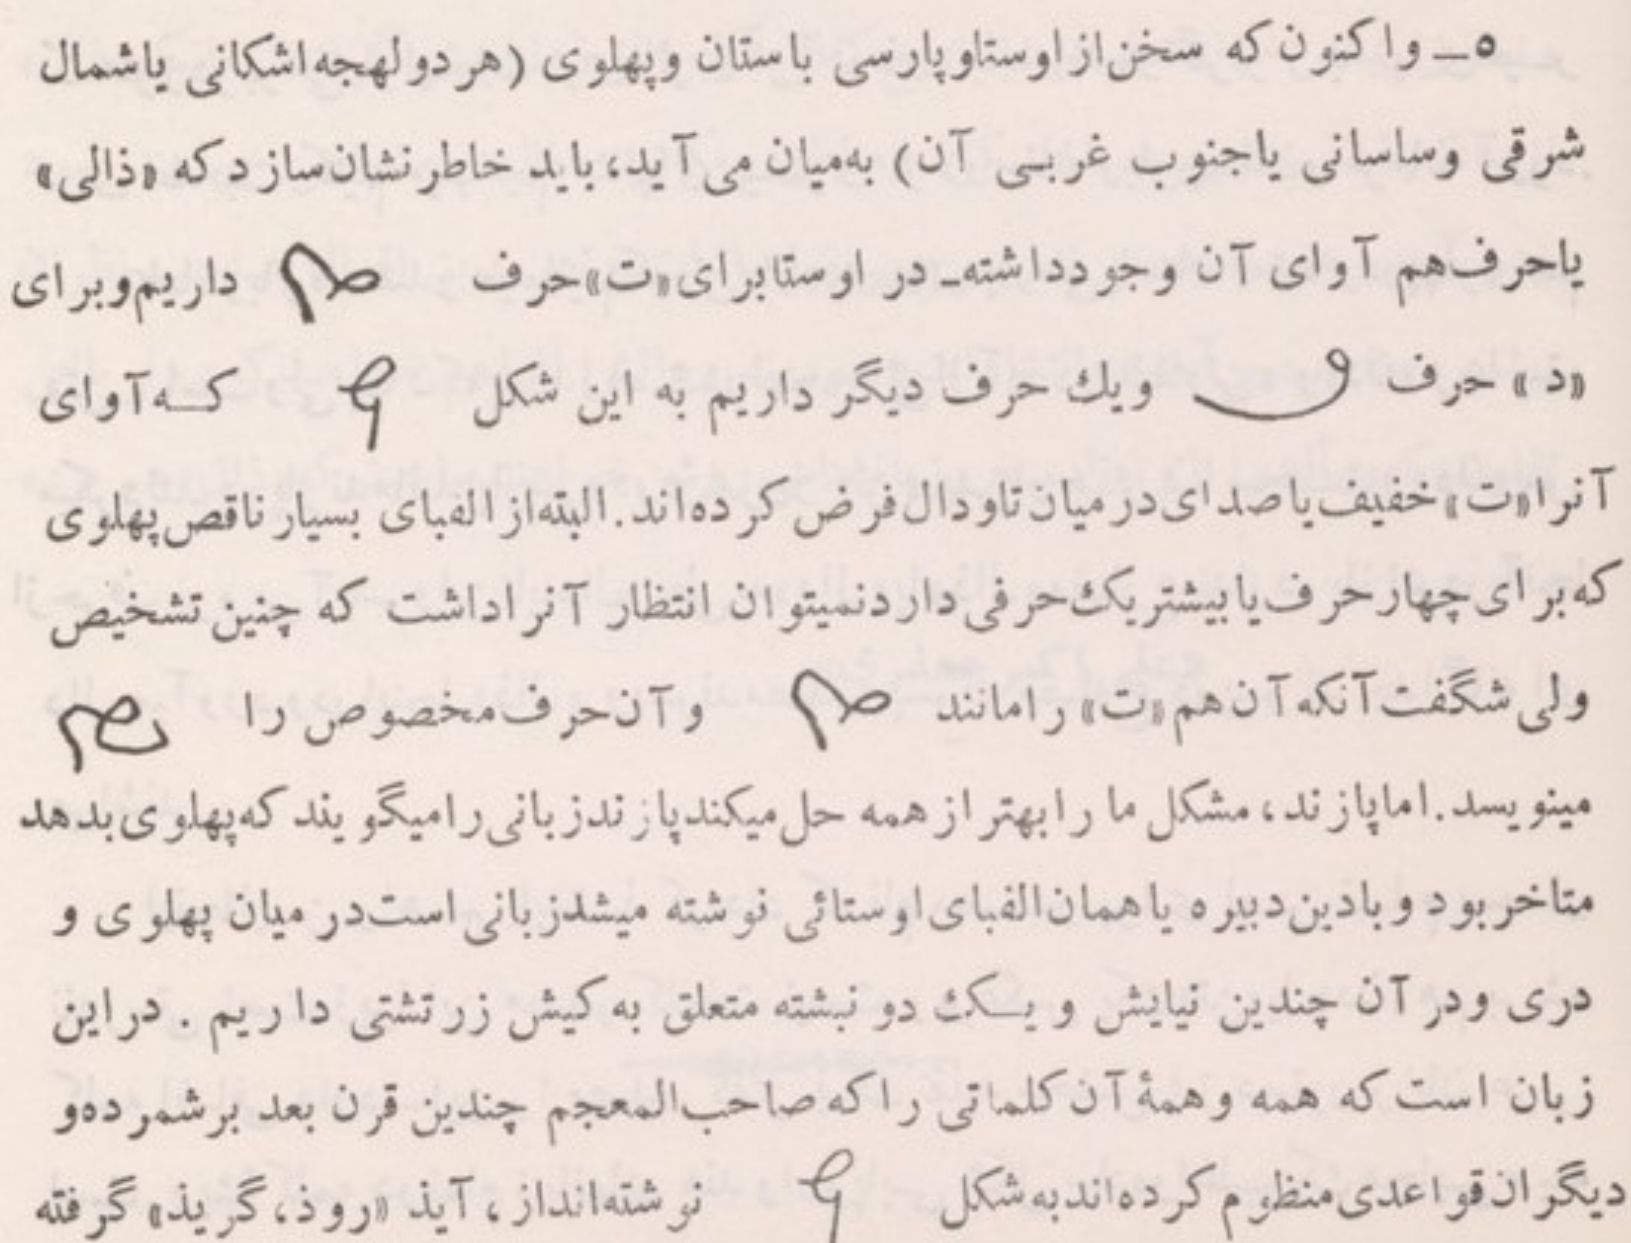 ۵ــ واکنون که سخن از اوستاو پارسی باستان وپهلوی (هر دو لهجه اشکانی یاشمال
شرقی وساسانی یاجنوب غربـی آن) به‌میان می‌آید، باید خاطر نشان سازد که «ذالی»
یاحرف هم آوای آن وجودداشته‌ـ در اوستا برای «ت» حرف داریم و برای
«د» حرف ویك حرف دیگر داریم به این شکل کــه آوای
آنرا «ت» خفیف یا صدای در میان تاو دال فرض کرده‌اند. البته از الفبای بسیار ناقص پهلوی
که برای چهار حرف یا بیشتر یک حرفی دارد نمیتوان انتظار آنرا داشت که چنین تشخیص
ولی شگفت آنکه آن هم «ت» را مانند و آن حرف مخصوص را
مینویسد. اما پازند، مشکل ما را بهتر از همه حل میکند پازند زبانی را میگویند که پهلوی بدهد
متاخر بود و بادین دبیره یا همان الفبای اوستائی نوشته میشد زبانی است در میان پهلوی و
دری ودر آن چندین نیایش و یــک دو نبشته متعلق به کیش زرتشتی داریم . در این
زبان است که همه و همهٔ آن کلماتی را که صاحب المعجم چندین قرن بعد برشمرده و
دیگران قواعدی منظوم کرده‌اند به شکل نوشته‌انداز، آیذ «روذ، گریذ» گرفته